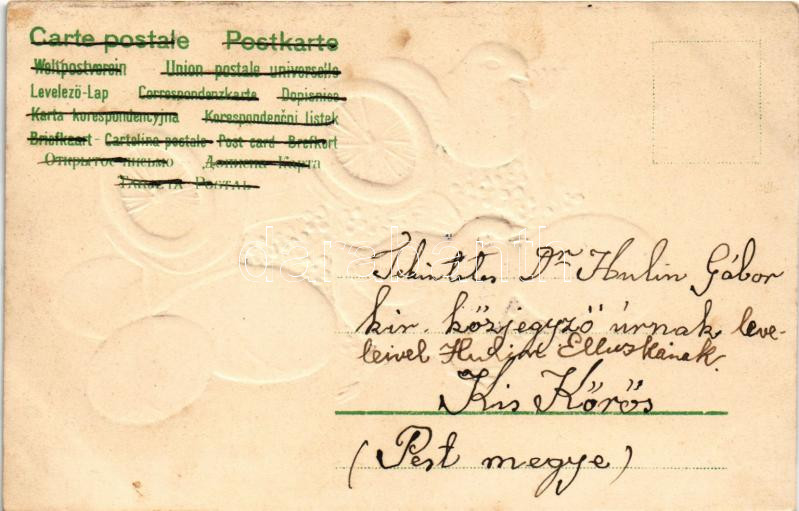 Carte postale Postkarte
Weltpostverein Union postale universelle
Levelező-Lap Correspondenzkarte Dopisnice
Karta korespondencyjna Korespondenční listek
Briefkaart - Cartolina postale - Post card - Brefkort
Открытое письмо Дописна Карта
Tarjeta Postal
Tekintetes Dr Hulin Gábor
kir. közjegyző úrnak leve-
leivel Hulin Elluskának.
Kis Kőrös
(Pest megye)
darabanth